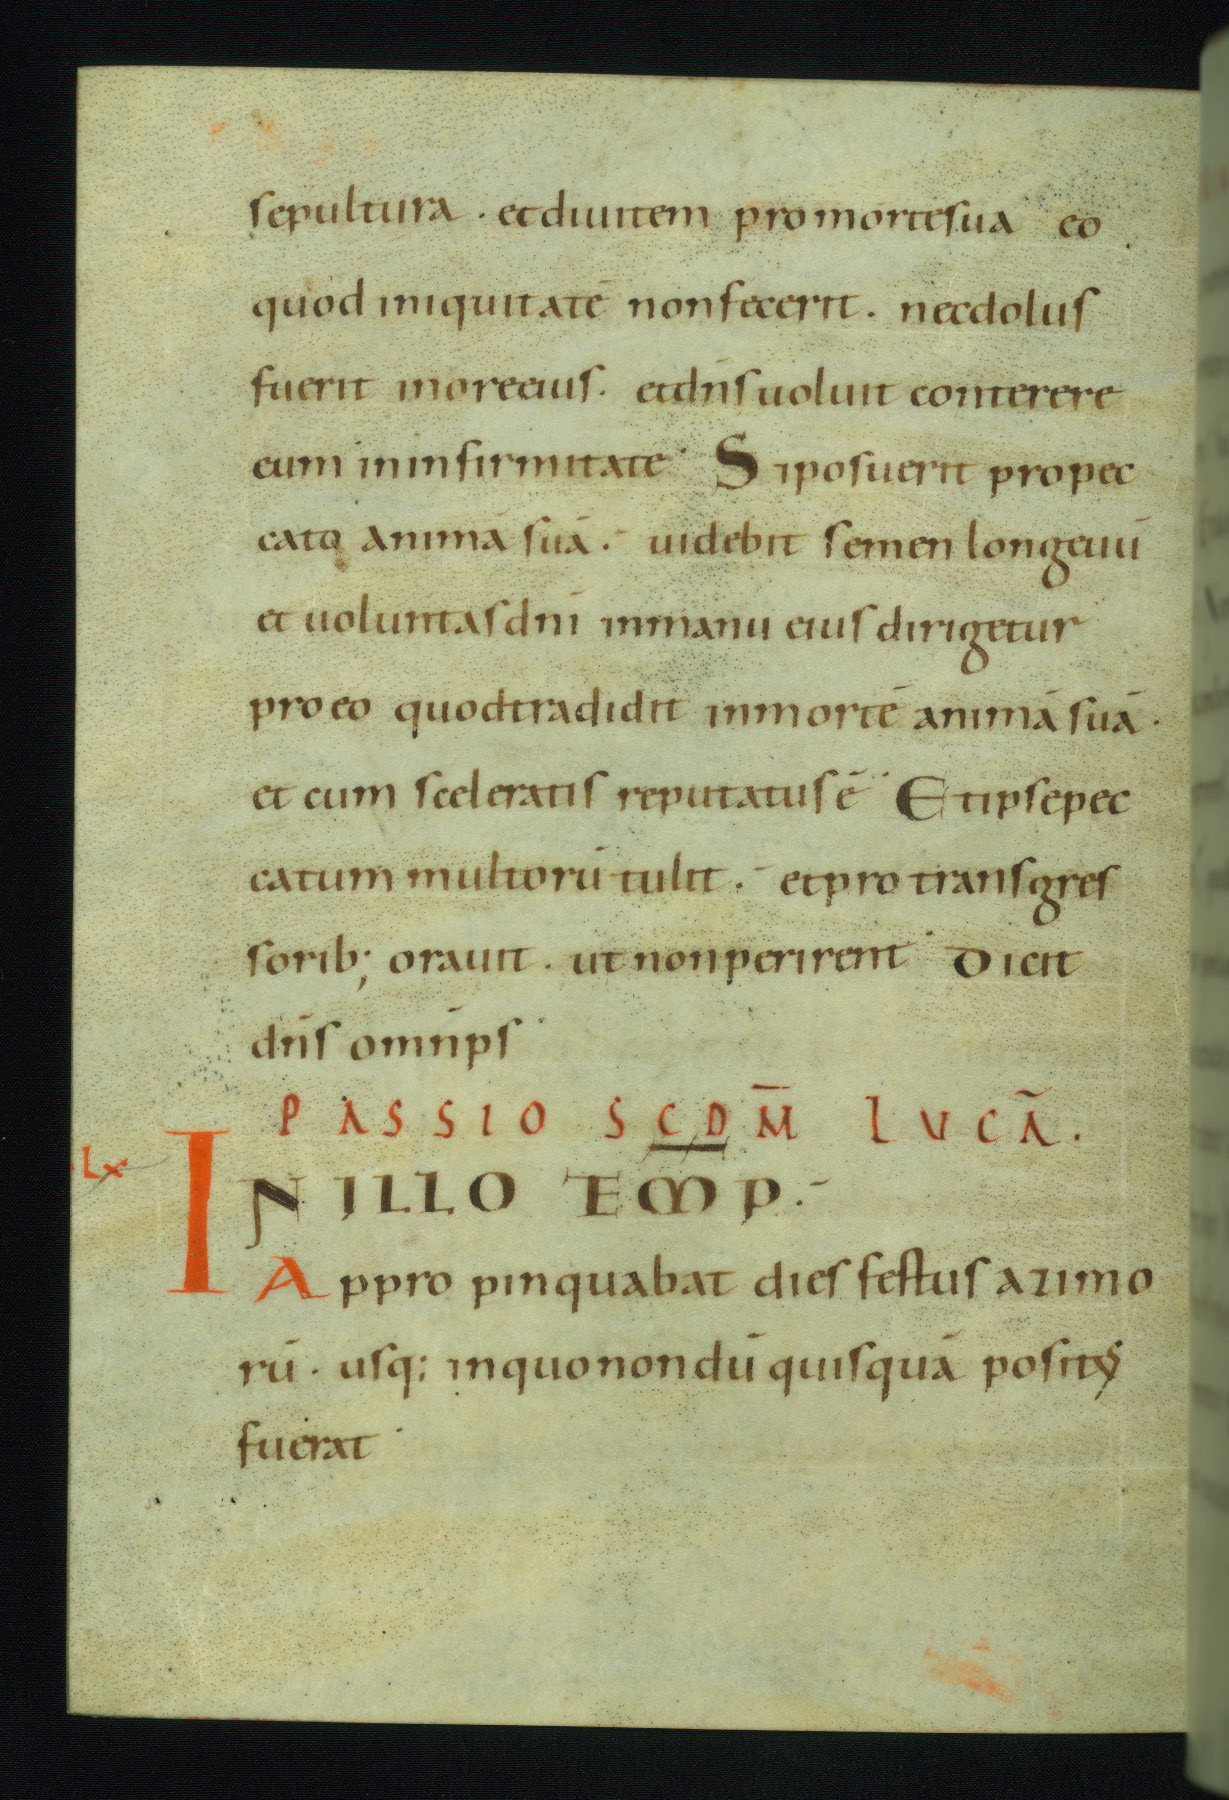 sepultura . et diuitem pro morte sua eo
quod iniquitatē non fecerit . nec dolus
fuerit in ore eius . et dn̄s uoluit conterere
eum in infirmitate . Si posuerit pro pec
cato animā suā . uidebit semen longeuū
et uoluntas dn̄i in manu eius dirigetur
pro eo quod tradidit in mortē animā suā .
et cum sceleratis reputatus ē . Et ipse pec
catum multorū tulit . et pro transgres
sorib; orauit . ut non perirent . Dicit
dn̄s omn̄ps .
PASSIO SCDM̄ LUCĀ .
Lx
IN ILLO TEMP .
Appropinquabat dies festus azimo
rū . usq; in quo nondū quisquā positus
fuerat .